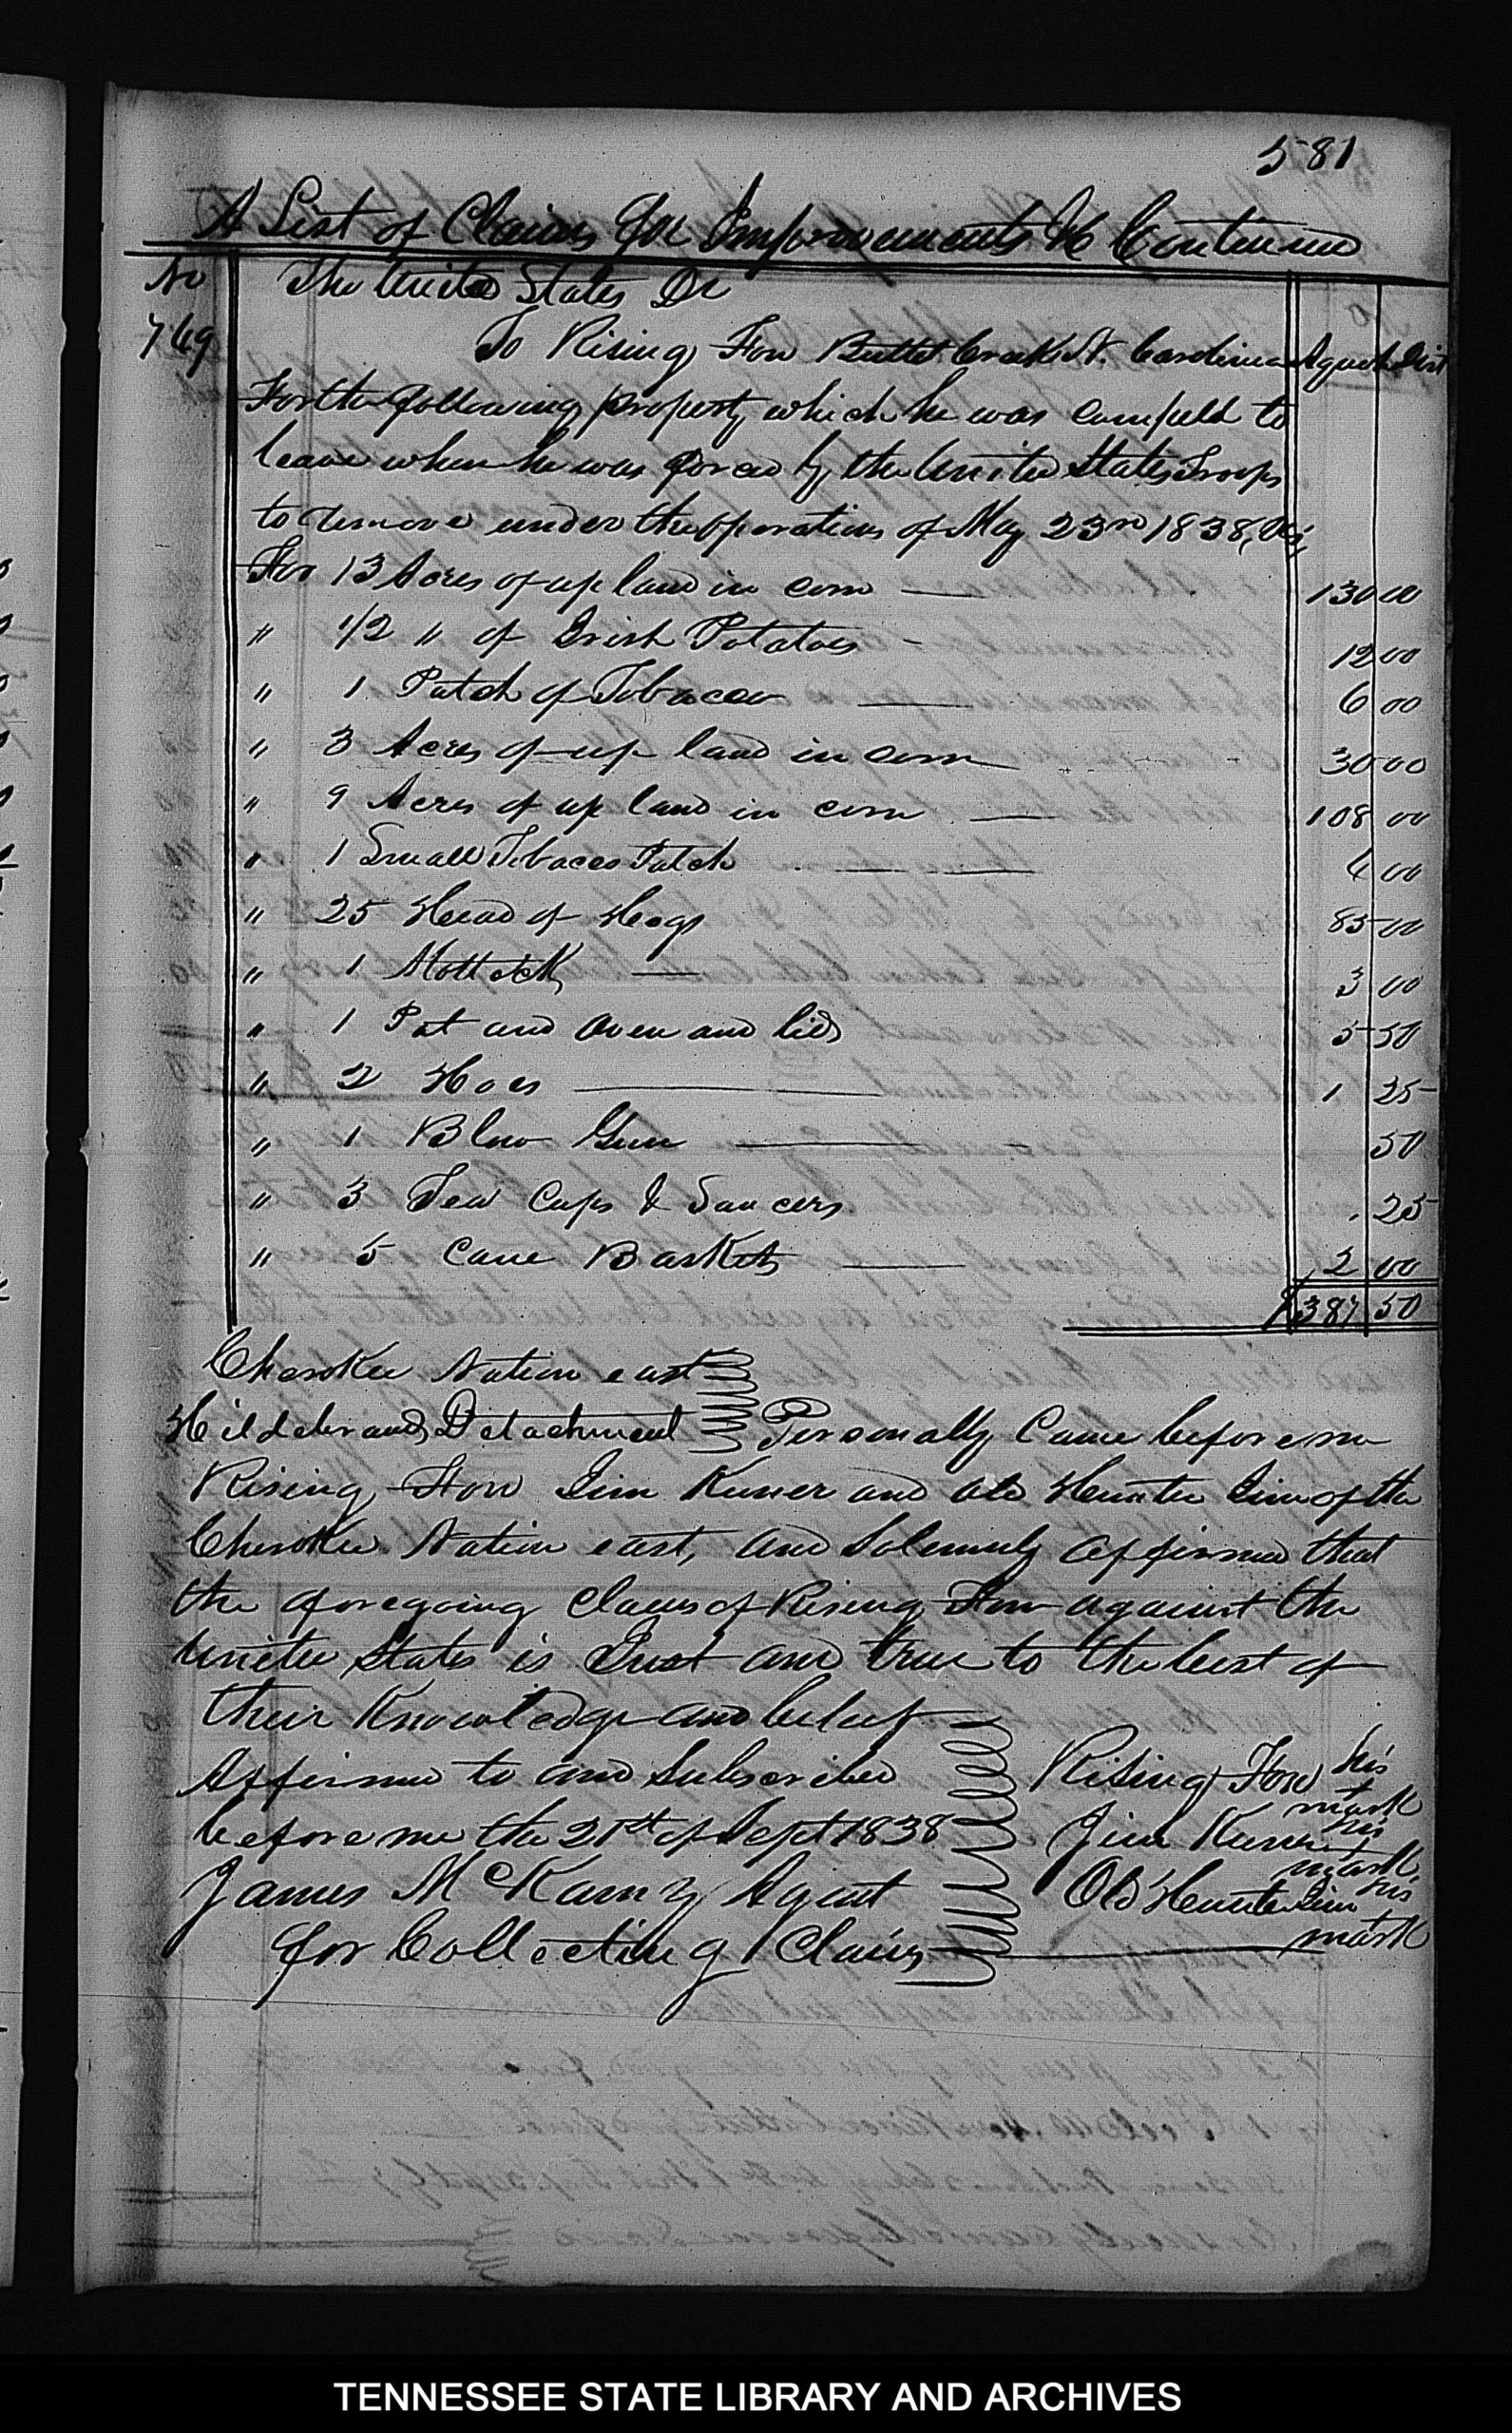 581
A List of Claims for Improvements &c Continued
No The United States Dr
769 To Rising Fow Buttet Creek N. Carolina Aquohe Dist
For the following property which he was compelld to
leave when he was forced by the United States Troops
to remove under the opperations of May 23rd 1838, Viz,
For 13 Acres of up land in corn — 130 00
" 1/2 " of Irish Potatoes - 12 00
" 1 Patch of Tobacco — 6 00
" 3 Acres of up land in corn 30 00
" 9 Acres of up land in corn — 108 00
" 1 Small Tobacco Patch — 4 00
" 25 Head of Hogs 85 00
" 1 Mattock — 3 00
" 1 Pot and Oven and lids 5 50
" 2 Hoes — 1 25
" 1 Blow Gun — 50
" 3 Tea Cups & Saucers 25
" 5 Cane Baskets — 2 00
$387 50
Cherokee Nation east
Hildebrands Detachment Personally Came before me
Rising Fow Jim Kuner and Old Hunter Jim of the
Cherokee Nation east, and Solemnly affirmed that
the aforegoing Claim of Rising Fow against the
United States is Just and true to the best of
their Knowledge and belief
Affirmed to and Subscribed Rising Fow his
before me the 21st of Sept 1838 mark
Jim Kuner his
James McKamy Agent mark
Old Hunter Jim his
for Collecting Claims mark
TENNESSEE STATE LIBRARY AND ARCHIVES